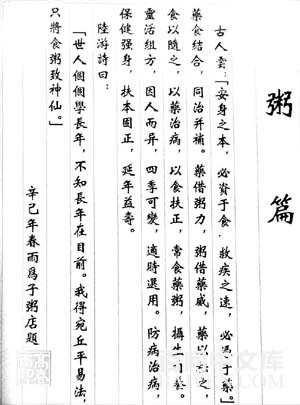 粥篇
古人雲：「安身之本，必資于食．救疾之速，必憑于藥。」
藥食結合，同治并補。藥借粥力，粥借藥威，藥以治之，
食以隨之，以藥治病，以食扶正，常食藥粥，攝二
靈活組方，因人而异，四季可變，適時選用。防病治病，
保健强身，扶本固正，延年益壽。
陸游詩曰：
「世人個個學長年，不知長年在目前。我得宛丘平易法，
只將食粥致神仙。」
辛已年春雨爲子粥店題